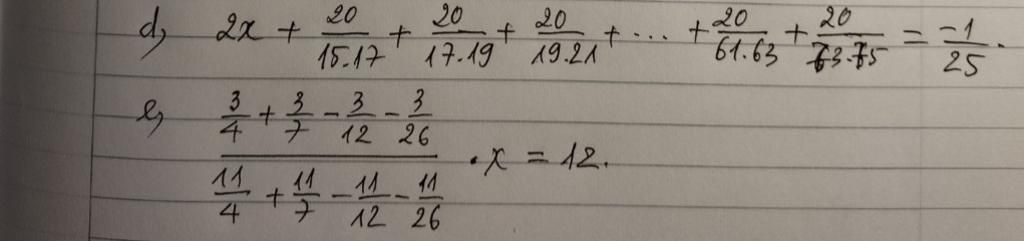 d, 2x + 20/15.17 + 20/17.19 + 20/19.21 + ... + 20/61.63 + 20/63.65 = -1/25.
e, (3/4 + 3/7 - 3/12 - 3/26)/(11/4 + 11/7 - 11/12 - 11/26) . x = 12.